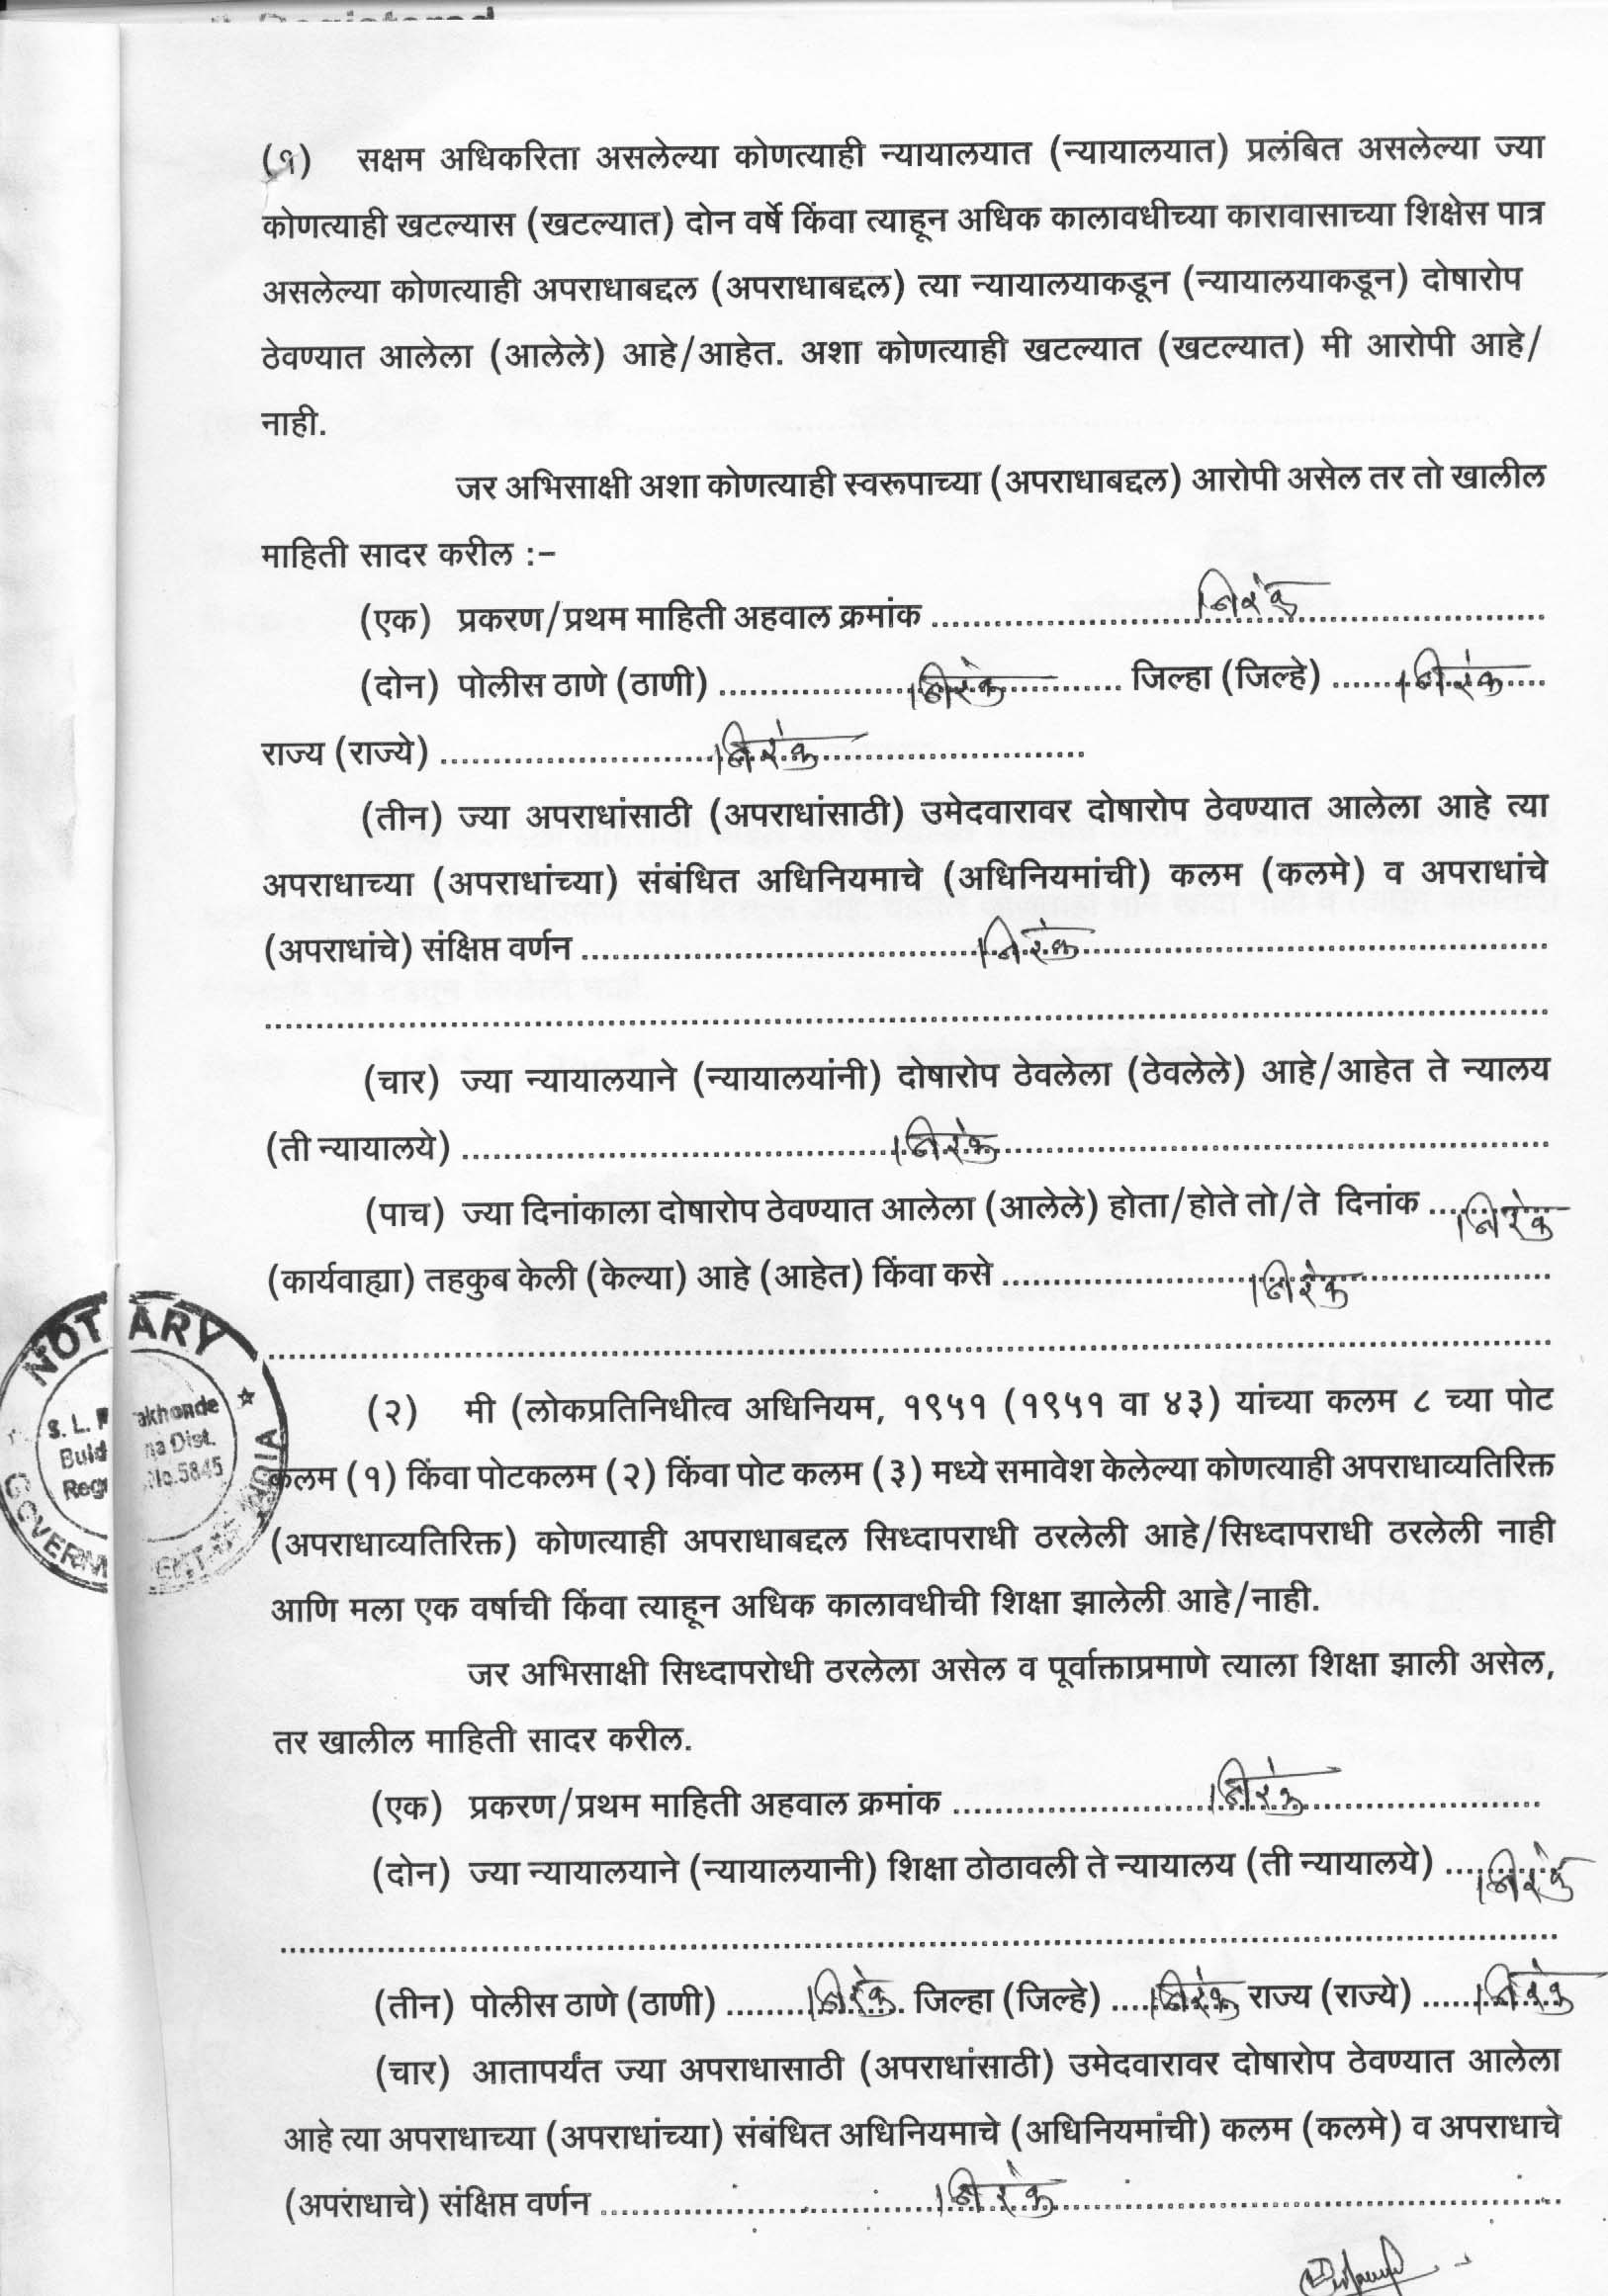 (१) सक्षम अधिकरिता असलेल्या कोणत्याही न्यायालयात (न्यायालयात) प्रलंबित असलेल्या ज्या
कोणत्याही खटल्यास (खटल्यात) दोन वर्षे किंवा त्याहून अधिक कालावधीच्या कारावासाच्या शिक्षेस पात्र
असलेल्या कोणत्याही अपराधाबद्दल (अपराधाबद्दल) त्या न्यायालयाकडून (न्यायालयाकडून) दोषारोप
ठेवण्यात आलेला (आलेले) आहे/आहेत. अशा कोणत्याही खटल्यात (खटल्यात) मी आरोपी आहे/
नाही.
जर अभिसाक्षी अशा कोणत्याही स्वरूपाच्या (अपराधाबद्दल) आरोपी असेल तर तो खालील
माहिती सादर करील :–
(एक) प्रकरण/प्रथम माहिती अहवाल क्रमांक ........ निरंक ........
(दोन) पोलीस ठाणे (ठाणी) ........ निरंक ........ जिल्हा (जिल्हे) ........ निरंक ........
राज्य (राज्ये) ........ निरंक ........
(तीन) ज्या अपराधांसाठी (अपराधांसाठी) उमेदवारावर दोषारोप ठेवण्यात आलेला आहे त्या
अपराधाच्या (अपराधांच्या) संबंधित अधिनियमाचे (अधिनियमांची) कलम (कलमे) व अपराधांचे
(अपराधांचे) संक्षिप्त वर्णन ........ निरंक ........
(चार) ज्या न्यायालयाने (न्यायालयांनी) दोषारोप ठेवलेला (ठेवलेले) आहे/आहेत ते न्यालय
(ती न्यायालये) ........ निरंक ........
(पाच) ज्या दिनांकाला दोषारोप ठेवण्यात आलेला (आलेले) होता/होते तो/ते दिनांक ........ निरंक
(कार्यवाह्या) तहकुब केली (केल्या) आहे (आहेत) किंवा कसे ........ निरंक ........
NOTARY
S. L. akhonde
Buld na Dist.
Reg No.5845
GOVERNMENT
(२) मी (लोकप्रतिनिधीत्व अधिनियम, १९५१ (१९५१ वा ४३) यांच्या कलम ८ च्या पोट
कलम (१) किंवा पोटकलम (२) किंवा पोट कलम (३) मध्ये समावेश केलेल्या कोणत्याही अपराधाव्यतिरिक्त
(अपराधाव्यतिरिक्त) कोणत्याही अपराधाबद्दल सिध्दापराधी ठरलेली आहे/सिध्दापराधी ठरलेली नाही
आणि मला एक वर्षाची किंवा त्याहून अधिक कालावधीची शिक्षा झालेली आहे/नाही.
जर अभिसाक्षी सिध्दापरोधी ठरलेला असेल व पूर्वाक्ताप्रमाणे त्याला शिक्षा झाली असेल,
तर खालील माहिती सादर करील.
(एक) प्रकरण/प्रथम माहिती अहवाल क्रमांक ........ निरंक ........
(दोन) ज्या न्यायालयाने (न्यायालयानी) शिक्षा ठोठावली ते न्यायालय (ती न्यायालये) ........ निरंक
(तीन) पोलीस ठाणे (ठाणी) ........ निरंक . जिल्हा (जिल्हे) ........ निरंक राज्य (राज्ये) ........ निरंक
(चार) आतापर्यंत ज्या अपराधासाठी (अपराधांसाठी) उमेदवारावर दोषारोप ठेवण्यात आलेला
आहे त्या अपराधाच्या (अपराधांच्या) संबंधित अधिनियमाचे (अधिनियमांची) कलम (कलमे) व अपराधाचे
(अपराधाचे) संक्षिप्त वर्णन ........ निरंक ........